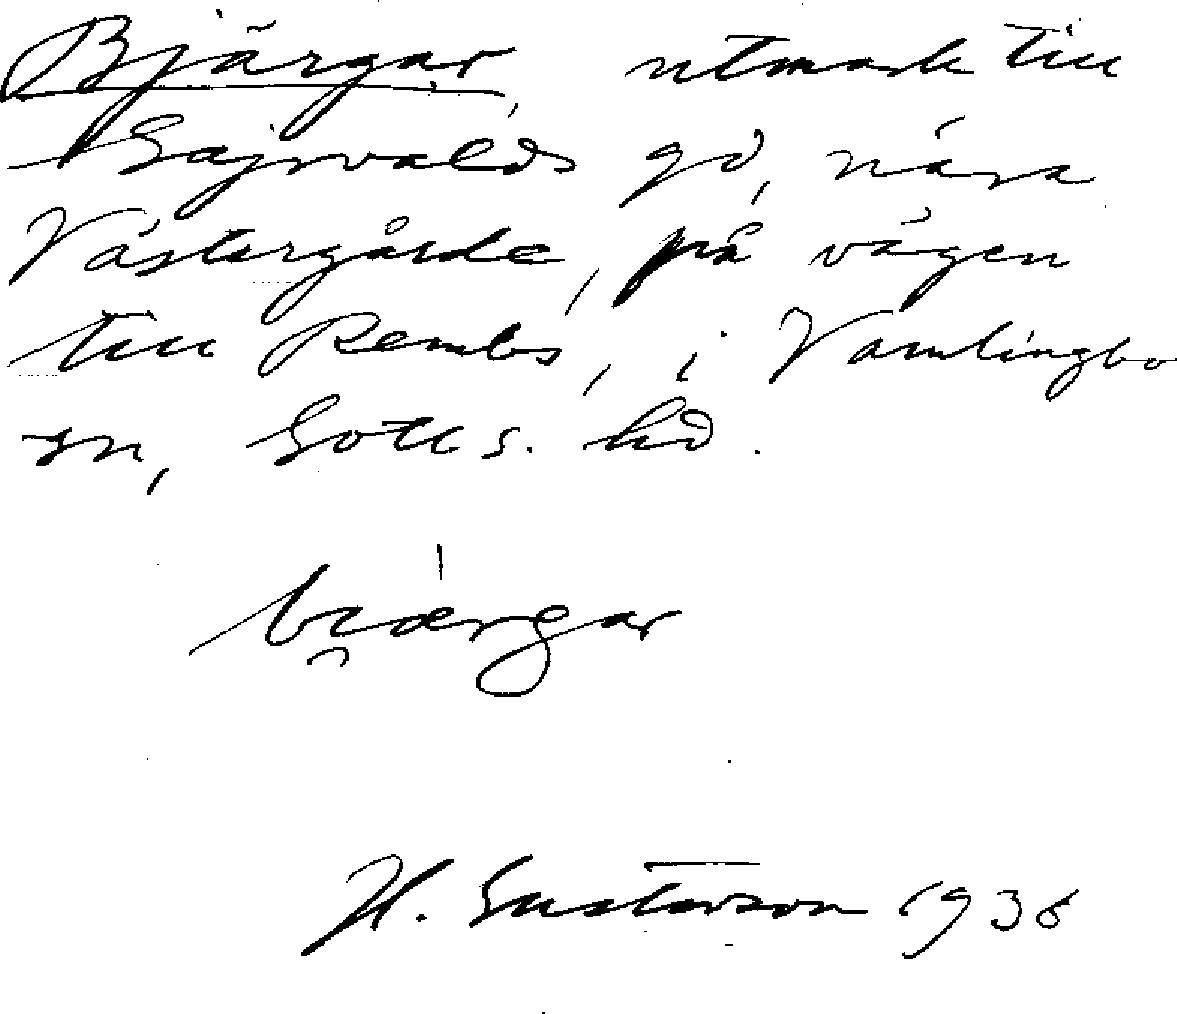 Bjärgar, utmark till
Gajrvalds gd, nära
Västergårde, på vägen
till Rembs, i Vamlingbo
sn, Gotl. s. hd.
bi̯ærgar
H. Gustavson 1936